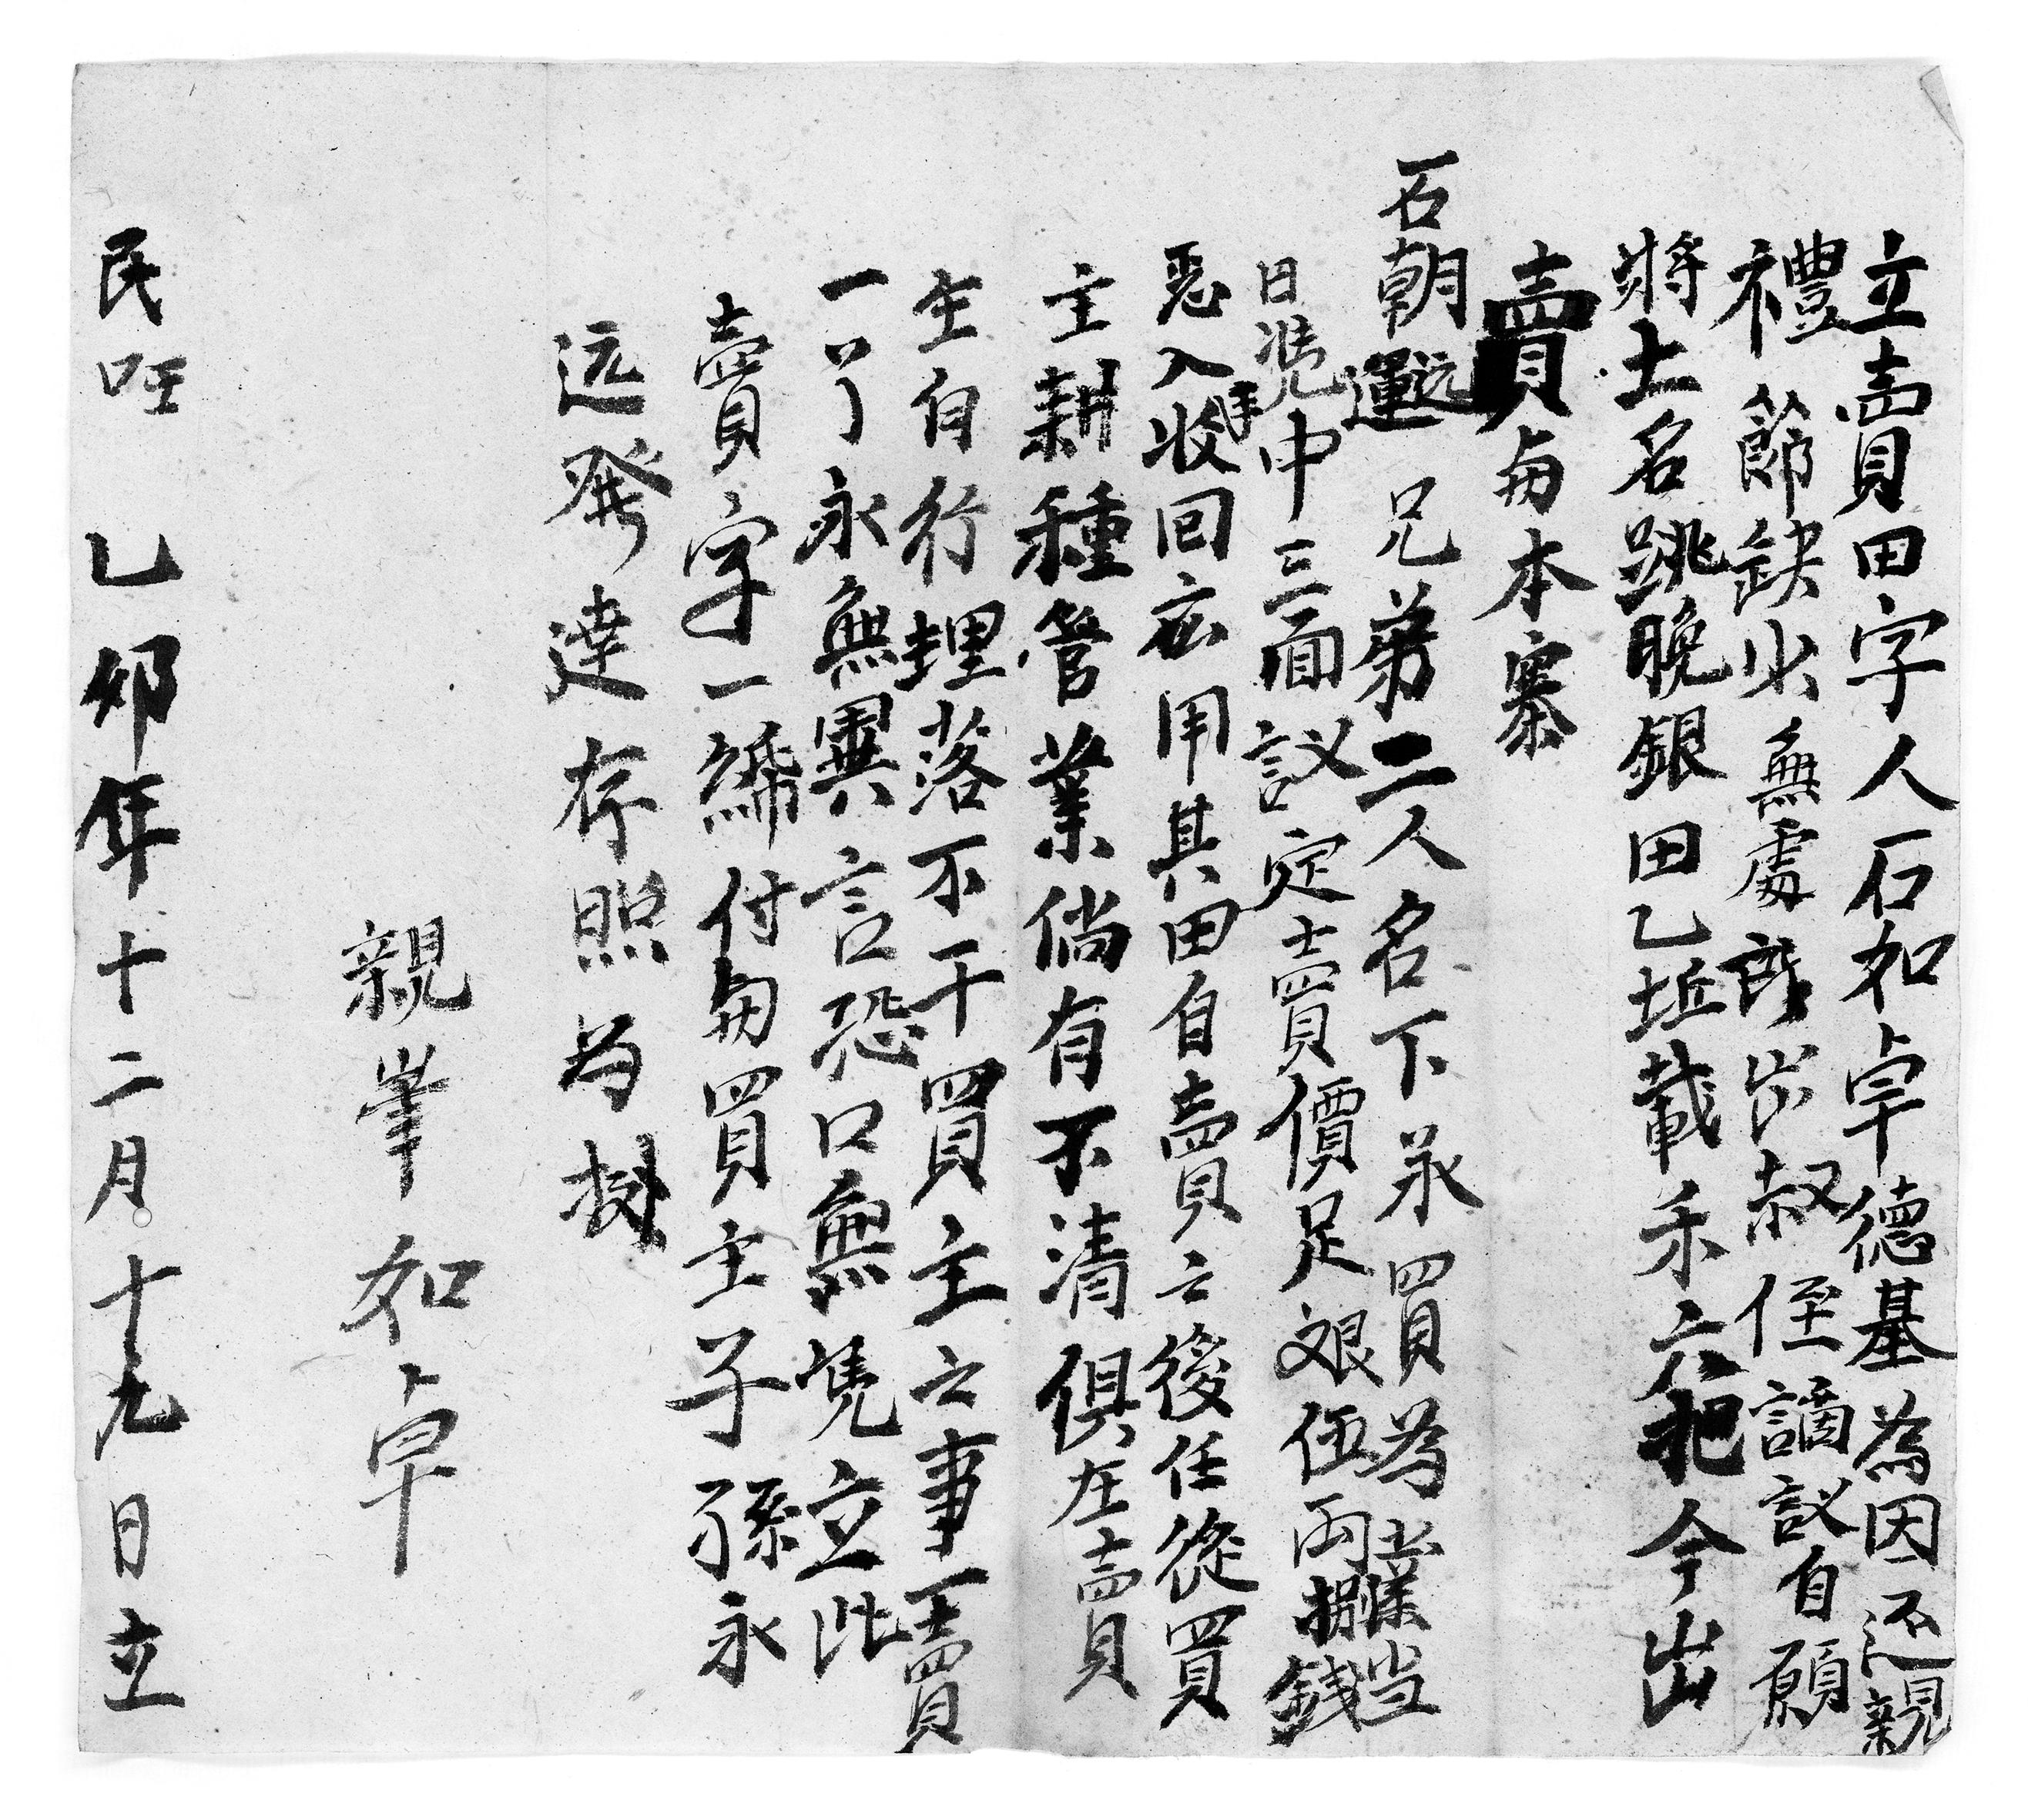 立賣田字人石如卓德基為因还親
禮節缺少無處出叔侄謫议自願
將土名跳晚銀田乙坵載禾六把今出
賣與本寨
石朝運远兄弟二人名下承買為業当
日凭中三面议定賣價足艮伍両捌錢
悉入手收回应用其田自賣之後任從買
主耕種管業倘有不清俱在賣
主自行理落不干買主之事一賣
一了永無異言恐口無凭立此
賣字一紙付與買主子孫永
远發達存照为據
親筆如卓
民囯乙卯年十二月十九日立